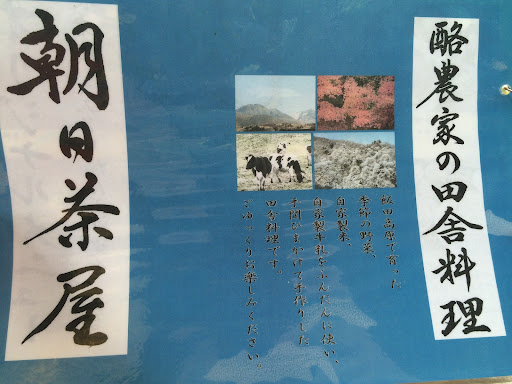 酪農家の田舎料理
飯田高原で育った
季節の野菜、
自家製米、
自家製牛乳をふんだんに使い、
手間ひまかけて手作りした
田舎料理です。
ごゆっくりお楽しみください。
朝日茶屋